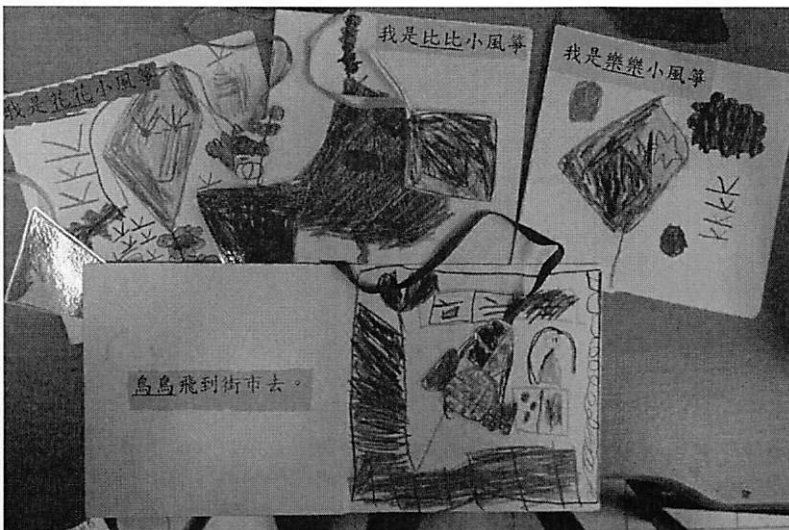 我是花花小風箏
我是比比小風箏
我是樂樂小風箏
鳥鳥飛到街市去。